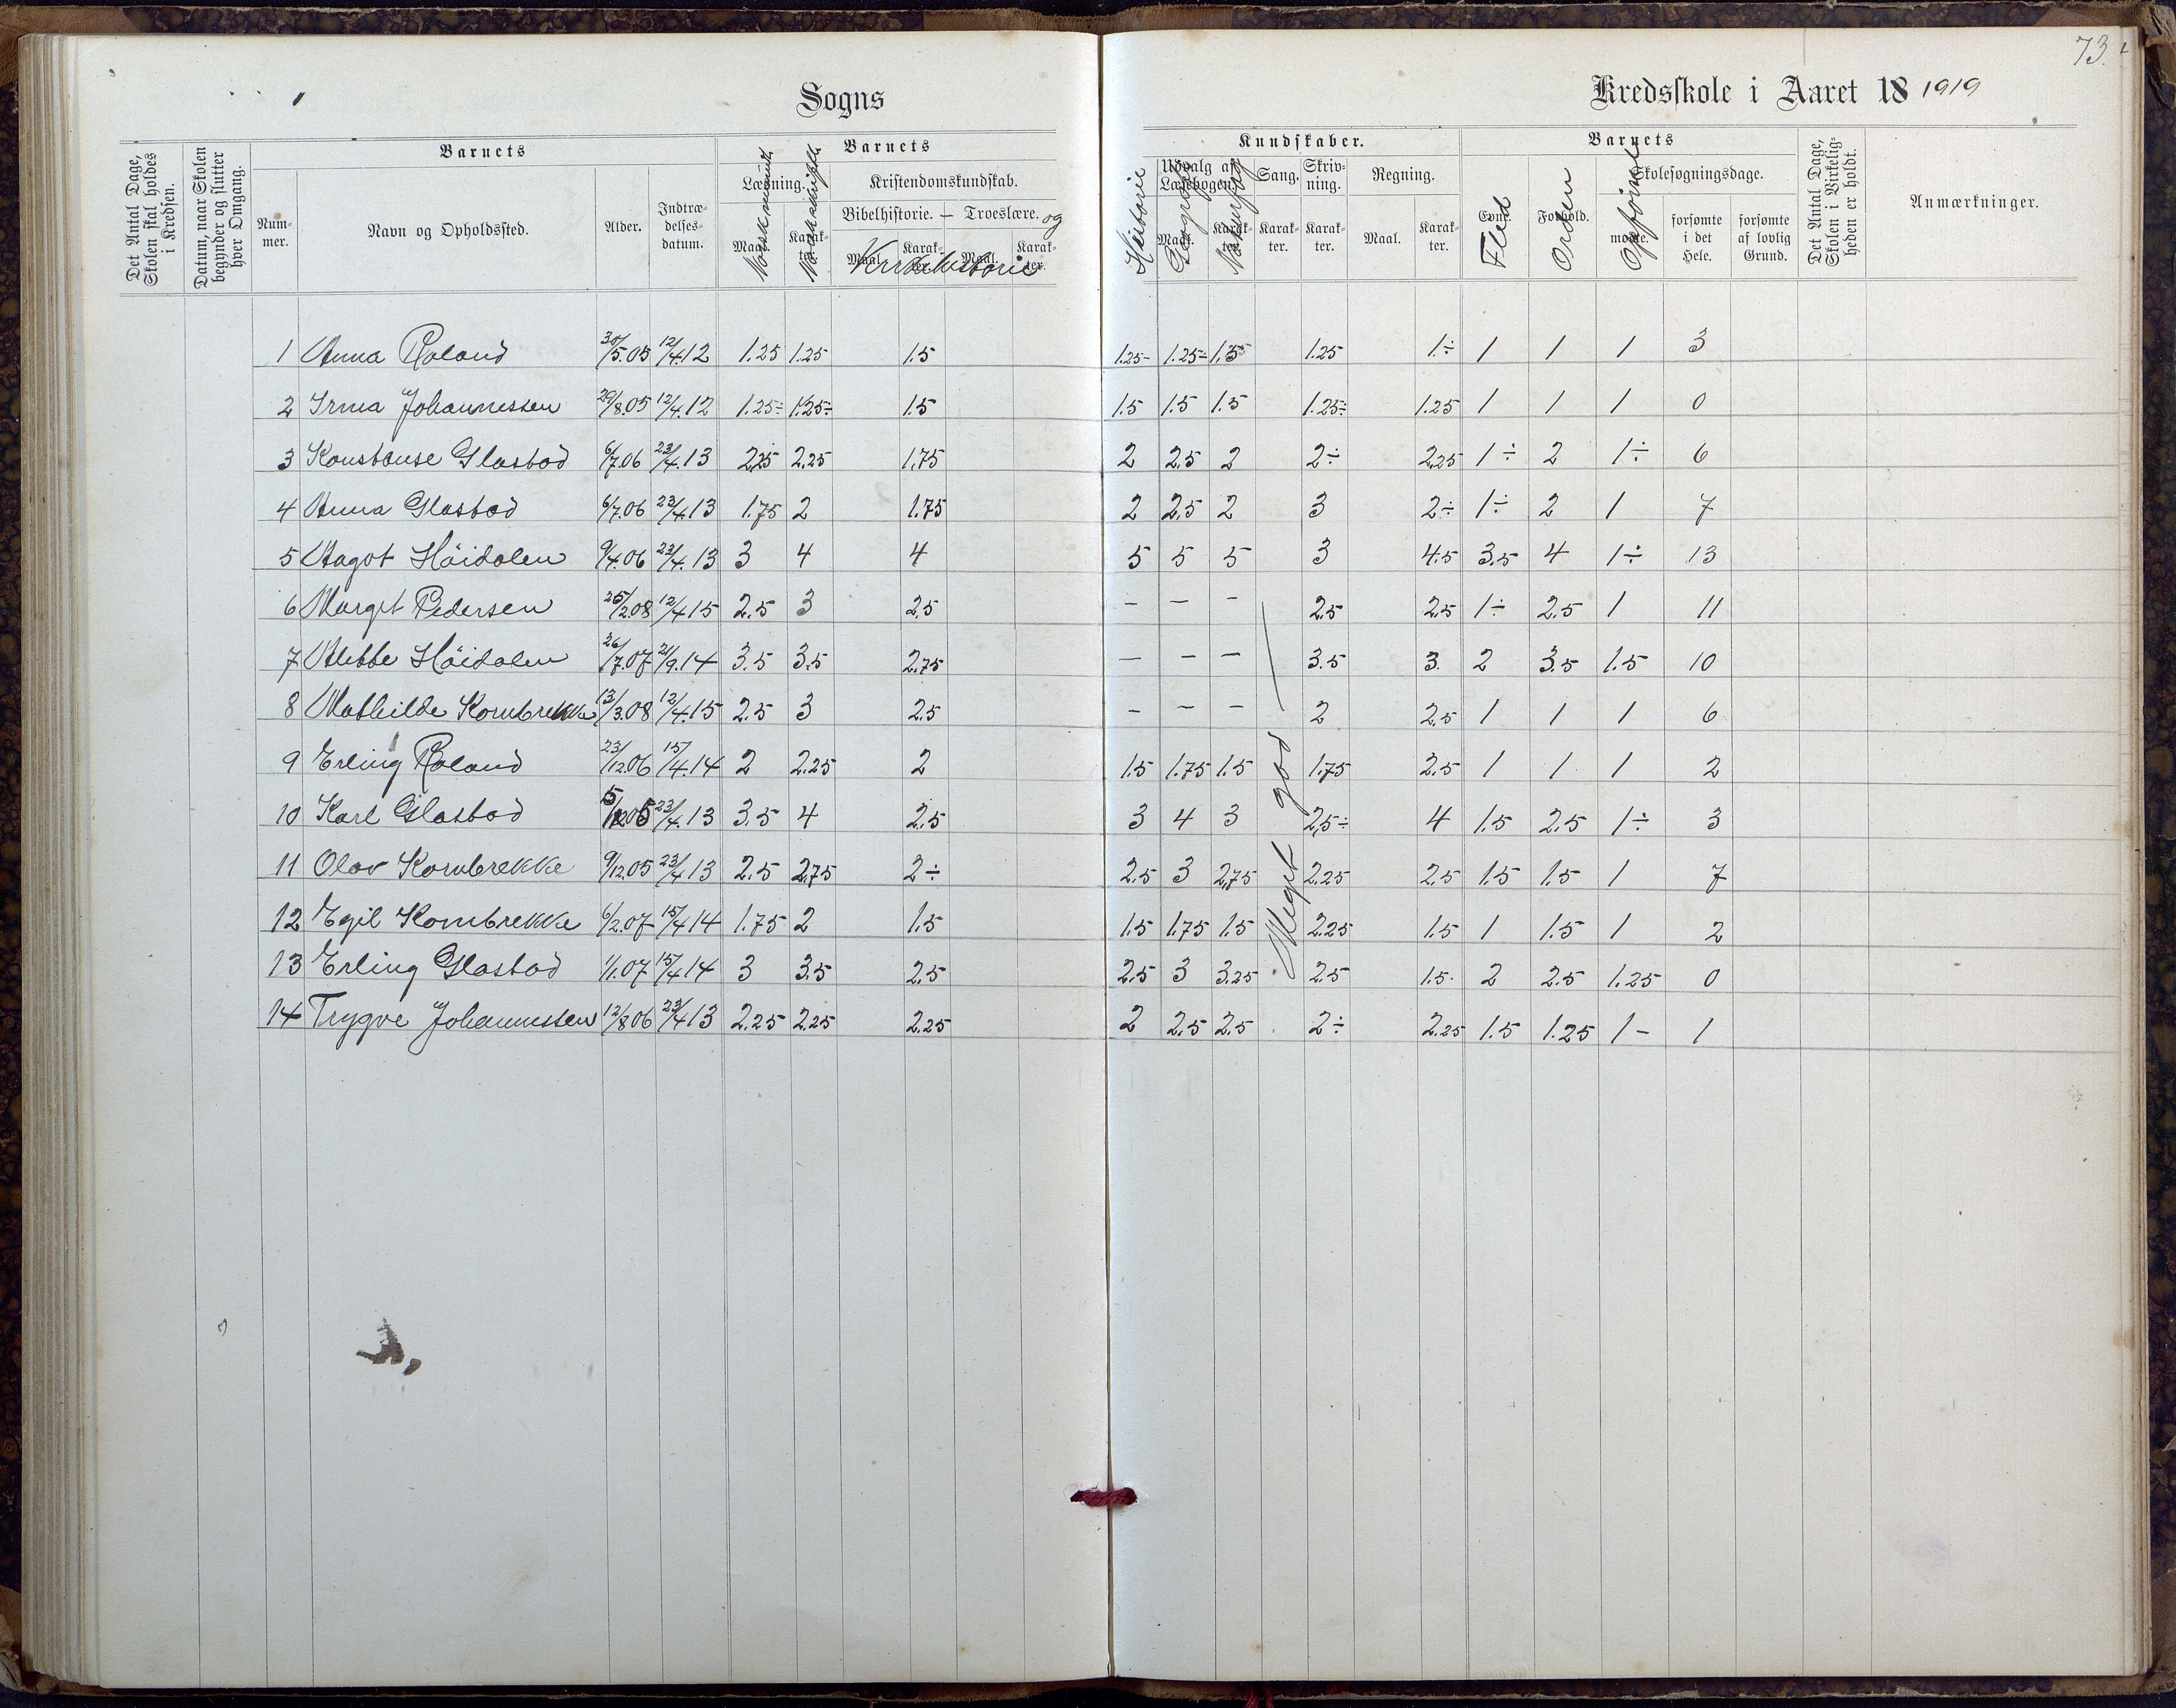 73.
Sogns
Kredsskole i Aaret 18 1919
Det Antal Dage, Skolen skal holdes i Kredsen.
Datum, naar Skolen begynder og slutter hver Omgang.
Barnets
Barnets
Kundskaber.
Barnets
Det Antal Dage, Skolen i Virkeligheden er holdt.
Anmærkninger.
Num-mer.
Navn og Opholdssted.
Alder.
Indtræ-delses-datum.
Læsning.
Kristendomskundskab.
Bibelhistorie. — Troeslære. og
Maal. Karak-ter. Maal. Karak-ter. Maal. Karak-ter.
Norsk mundtl. Norsk skriftl. Kirkehistorie
Historie
Udvalg af Læsebogen.
Geografi Naturfag
Maal. Karak-ter.
Sang. Karak-ter.
Skriv-ning. Karak-ter.
Regning. Maal. Karak-ter.
Evner. Forhold.
Flid Orden Opførsel
Skolesøgningsdage.
mødte. forsømte i det Hele. forsømte af lovlig Grund.
1 Anna Roland 30/5.05 12/4.12 1.25 1.25 1.5 1.25- 1.25÷ 1.5 1.25 1.÷ 1 1 1 3
2 Irma Johannessen 29/8.05 12/4.12 1.25÷ 1.25÷ 1.5 1.5 1.5 1.5 1.25÷ 1.25 1 1 1 0
3 Konstanse Glastad 6/7.06 23/4.13 2,25 2.25 1,75 2 2.5 2 2÷ 2.25 1÷ 2 1÷ 6
4 Anna Glastad 6/7.06 23/4.13 1.75 2 1.75 2 2.5 2 3 2÷ 1÷ 2 1 7
5 Aagot Höidalen 9/4.06 23/4.13 3 4 4 5 5 5 3 4.5 3.5 4 1÷ 13
6 Margit Pedersen 25/2.08 12/4.15 2.5 3 2.5 – – – 2.5 2.5 1÷ 2.5 1 11
7 Mebbe Höidalen 26/7.07 21/9.14 3.5 3.5 2.75 – – – 3.5 3. 2 3.5 1.5 10
8 Mathilde Kornbrekke 13/3.08 12/4.15 2.5 3 2.5 – – – 2 2.5 1 1 1 6
9 Erling Roland 23/12.06 15/4.14 2 2.25 2 1.5 1.75 1.5 1.75 2.5 1 1 1 2
10 Karl Glastad 5/12.05 23/4.13 3.5 4 2.5 3 4 3 2,5÷ 4 1.5 2.5 1÷ 3
11 Olav Kornbrekke 9/12.05 23/4.13 2.5 2.75 2÷ 2.5 3 2,75 2.25 2.5 1.5 1.5 1 7
12 Egil Kornbrekke 6/2.07 15/4.14 1.75 2 1.5 1.5 1.75 1.5 2.25 1.5 1 1.5 1 2
13 Erling Glastad 1/1.07 15/4.14 3 3.5 2.5 2.5 3 3.25 2.5 1.5. 2 2.5 1.25 0
14 Trygve Johannessen 12/8.06 23/4.13 2.25 2.25 2.25 2 2.5 2.5 2÷ 2.25 1.5 1.25 1– 1
Meget god